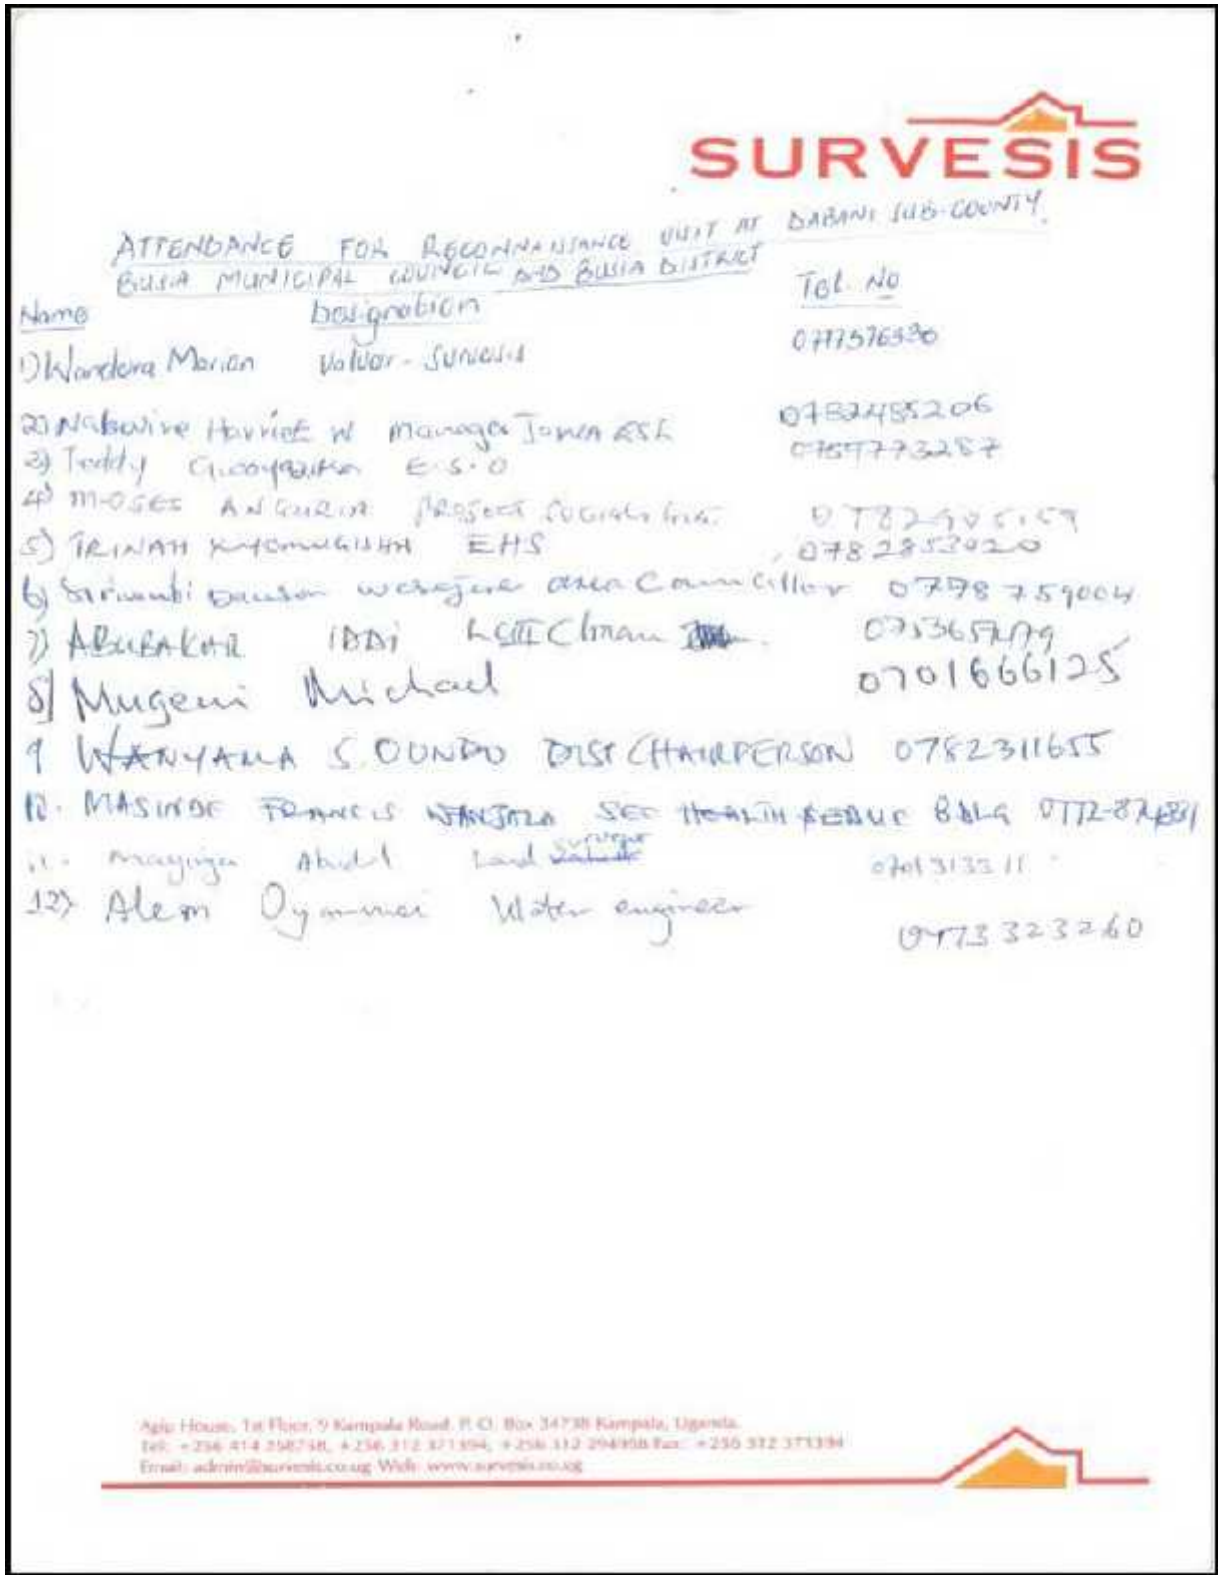 SURVESIS
ATTENDANCE FOR RECONNAISANCE VISIT AT DABANI SUB-COUNTY,
BUSIA MUNICIPAL COUNCIL AND BUSIA DISTRICT
Name Designation Tel. No
1) Wandera Marion Valuer - Survesis 0777576330
2) Nabwire Harriet W Manager Jowa 0782485206
3) Teddy E.S.O 0759773287
4) MOSES ANGURIA PROJECT
5) TRINAH KYOMUGISHA EHS 0782853020
6) area Councillor 0778759004
7) ABUBAKAR IDDI LCIII C/man
8) Mugeni Michael 0701666125
9 WANYAMA S. OUNDO DIST CHAIRPERSON 0782311655
10. MASINDE FRANCIS WANJALA SEC HEALTH BDLG
11. Mayiga Abdul Land Surveyor 0701313311
12) Alem Water engineer 0773323260
Agip House, 1st Floor, 9 Kampala Road. P. O. Box 34738 Kampala, Uganda.
Tel: +256 414 258758, +256 312 371394, +256 312 294958 Fax: +256 312 371394
Email: admin@survesis.co.ug Web: www.survesis.co.ug